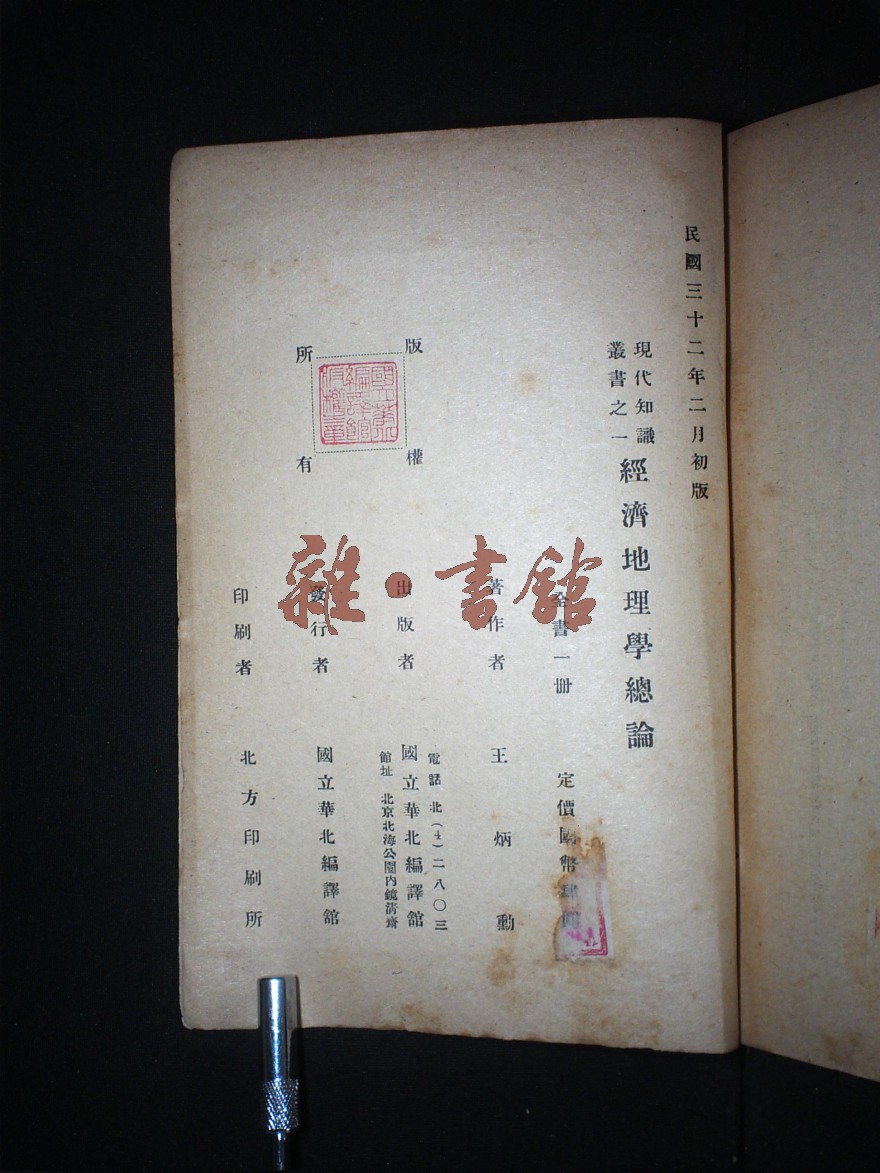 民國三十二年二月初版
現代知識
叢書之一
經濟地理學總論
全書一冊 定價國幣肆圓
著作者 王炳勳
出版者 國立華北編譯館
電話 北(4)二八〇三
館址 北京北海公園內鏡清齋
發行者 國立華北編譯館
印刷者 北方印刷所
版權所有
雜·書館